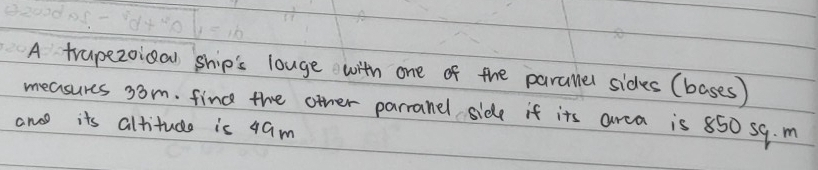 A trapezoidal ship's louge with one of the parallel sides (bases)
measures 33m. find the other parranel side if its area is 850 sq.m
and its altitude is 49m